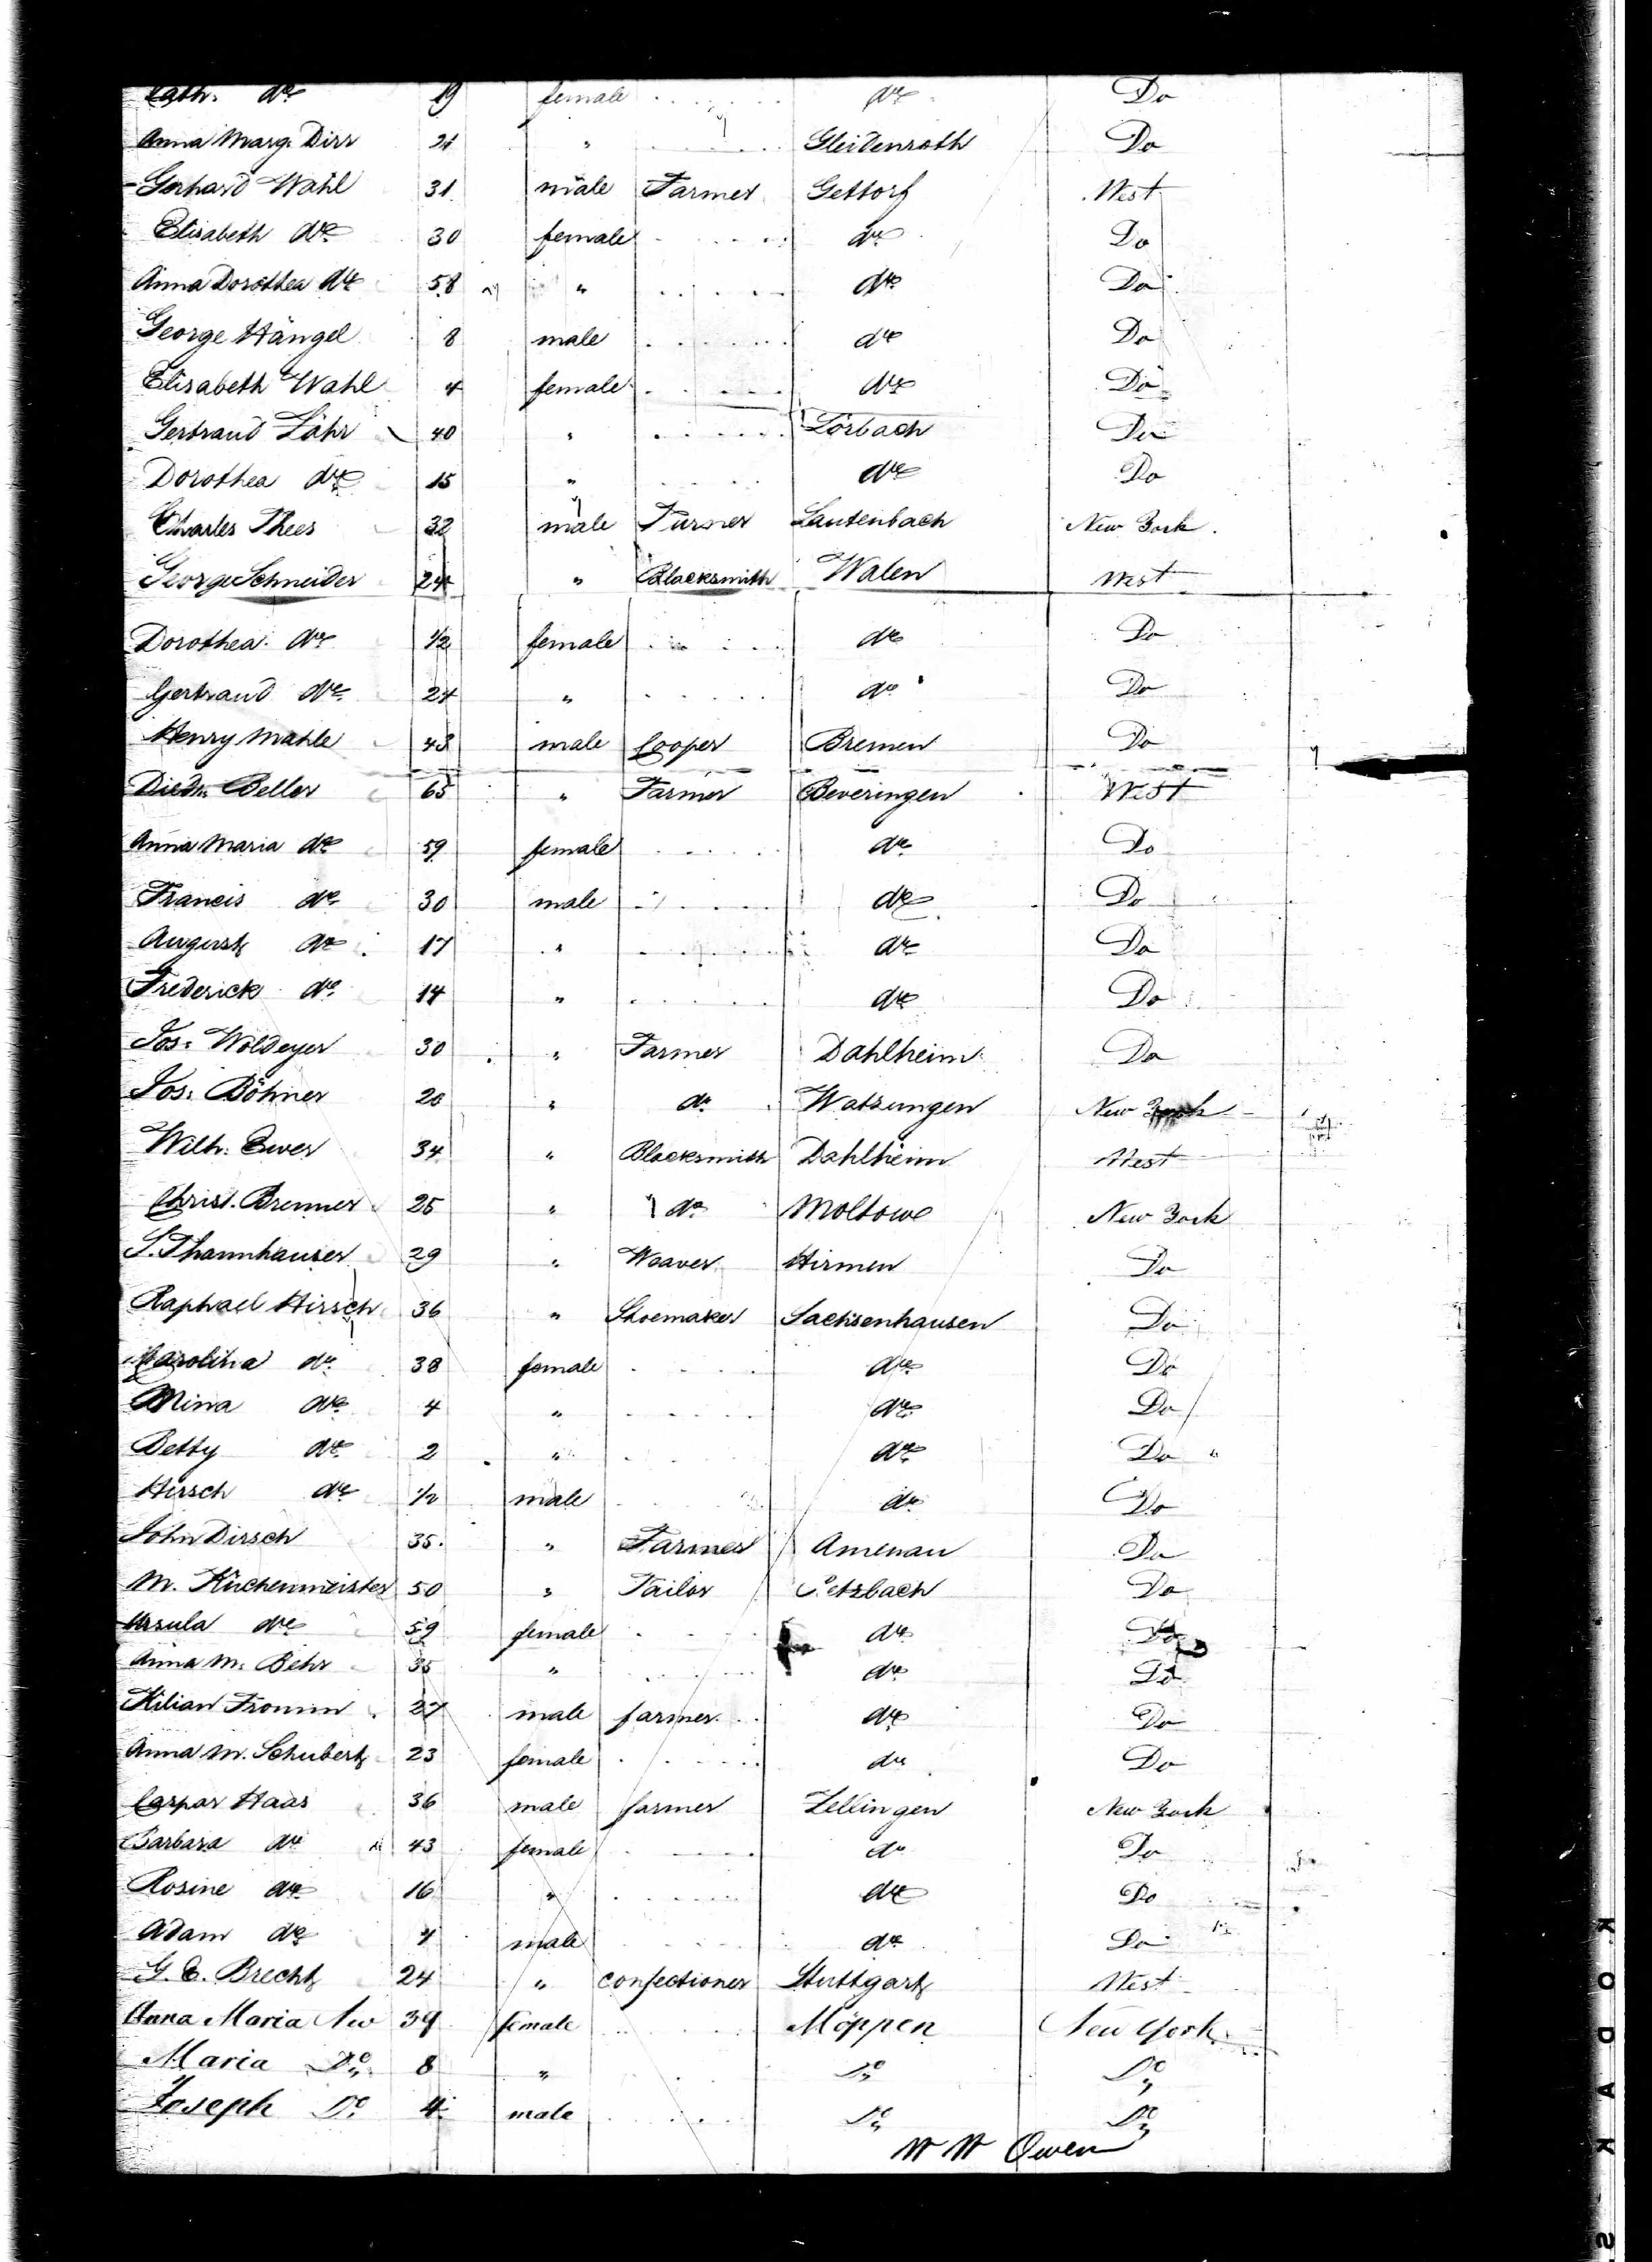 Cath. do 19 female do Do
Anna Marg. Dirr 21 " Gleidenroth Do
Gerhard Wahl 31 male Farmer Gettorf West
Elisabeth do 30 female do Do
Anna Dorothea do 58 " do Do
George Hängel 8 male do Do
Elisabeth Wahl 4 female do Do
Gertraud Löhr 40 " Lörbach Do
Dorothea do 15 " do Do
Charles Thees 32 male Turner Lautenbach New York.
George Schneider 24 " Blacksmith Walen West
Dorothea do 1/2 female do Do
Gertraud do 24 " do Do
Henry Mahle 43 male Cooper Bremen Do
Diedr. Beller 65 " Farmer Beveringen West
Anna Maria do 59 female do Do
Francis do 30 male do Do
August do 17 " do Do
Frederick do 14 " do Do
Jos: Woldeyer 30 " Farmer Dahlheim Do
Jos: Böhner 20 " do Watzungen New York
Wilh: Ewer 34 " Blacksmith Dahlheim West
Christ. Brenner 25 " do Moltowe New York
S. Thannhauser 29 " Weaver Hirmen Do
Raphael Hirsch 36 " Shoemaker Sachsenhausen Do
Carolina do 38 female do Do
Mina do 4 " do Do
Betty do 2 " do Do
Hirsch do 1/2 male do Do
John Dirsch 35 " Farmer Amenau Do
M. Küchenmeister 50 " Tailor Retzbach Do
Ursula do 59 female do Do
Anna M. Behr 35 " do Do
Kilian Fromm 27 male farmer do Do
Anna M. Schubert 23 female do Do
Caspar Haas 36 male farmer Zellingen New York
Barbara do 43 female do Do
Rosine do 16 " do Do
Adam do 4 male do Do
G. E. Brecht 24 " confectioner Stuttgart West
Anna Maria 39 female Möppen New York
Maria Do 8 " Do Do
Joseph Do 4 male Do Do
W W Owen
KODAK S